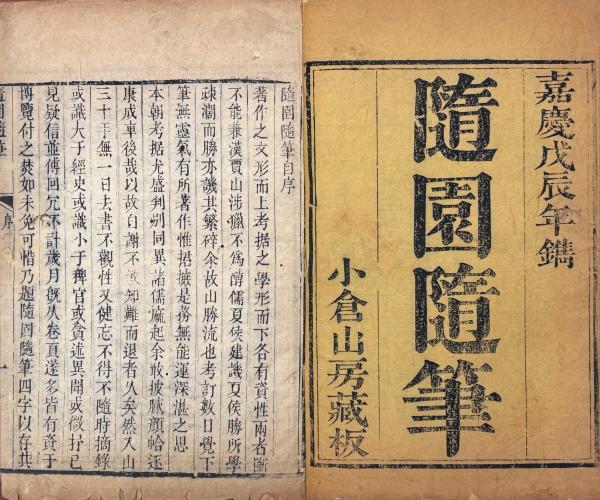 嘉慶戊辰年鐫
隨園隨筆
小倉山房藏板
隨園隨筆自序
著作之文形而上考据之學形而下各有資性兩者斷
不能兼漢賈山涉獵不爲醇儒夏侯建譏夏侯勝所學
疎濶而勝亦譏其繁碎余故山勝流也考訂數日覺下
筆無靈氣有所著作惟捃摭是務無能運深湛之思
本朝考据尤盛判别同異諸儒麻起余敢披膩顔帢逐
康成車後哉以故自謝不敏知難而退者久矣然入山
三十年無一日去書不觀性又健忘不得不隨時摘錄
或識大于經史或識小于稗官或貪述異聞或微抒己
見疑信並傳回冗不計歲月旣久卷頁遂多皆有資于
博覽付之焚如未免可惜乃題隨園隨筆四字以存其
序
一